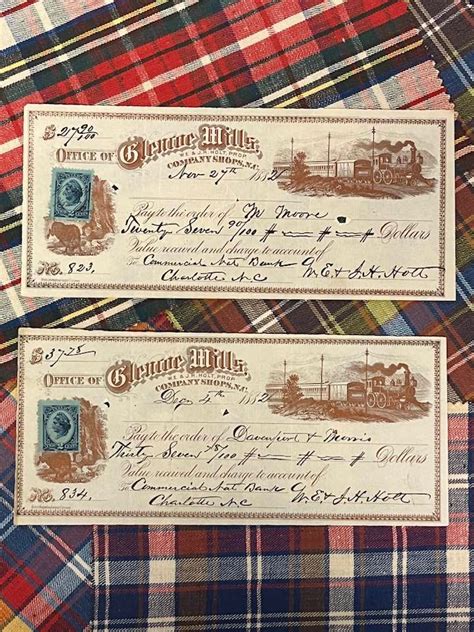 $27 90/100
Glencoe Mills,
OFFICE OF
W.E. & J.H. HOLT, PROP.
COMPANY SHOPS, N.C.
Nov 27th 1882
Pay to the order of M Moore
Twenty Seven 90/100 Dollars
Value received and charge to account of
To Commercial Nat Bank
No. 823. Charlotte N.C W.E & J.H. Holt
$37.78
Glencoe Mills,
OFFICE OF
W.E. & J.H. HOLT, PROP.
COMPANY SHOPS, N.C.
Dec 4th 1882
Pay to the order of Davenport & Morris
Thirty Seven 78/100 Dollars
Value received and charge to account of
To Commercial Nat Bank
No. 834. Charlotte N.C W.E & J.H. Holt